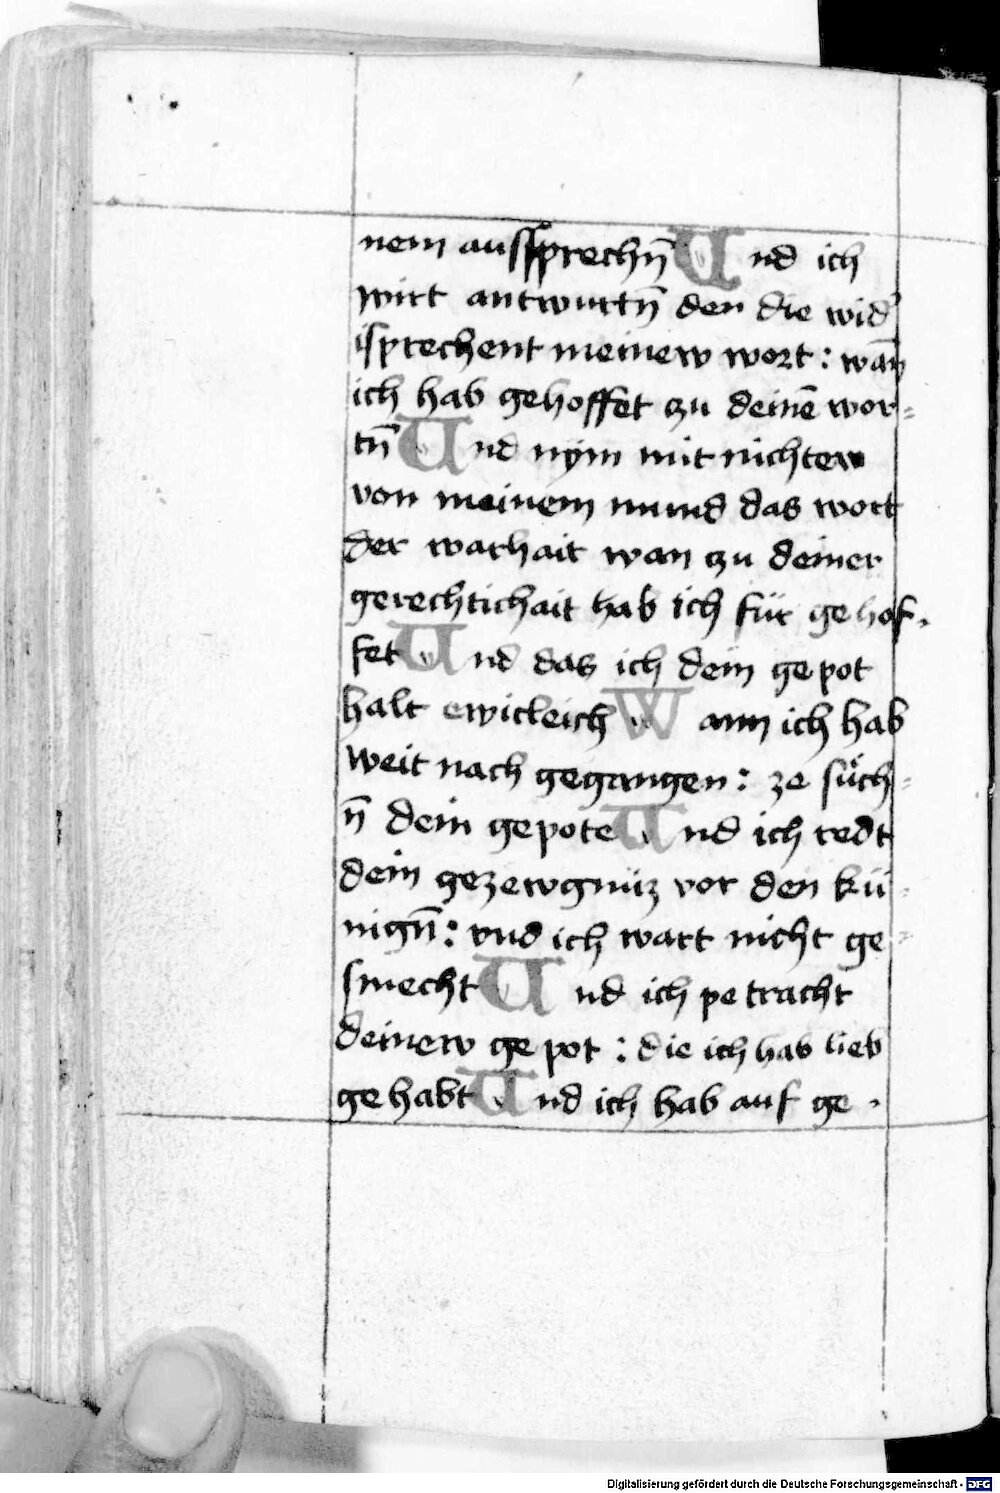 nem aussprechn̄ Und ich
wirt antwurtn̄ den die wid'
ısprechent meinew wort : wan̄
ich hab gehoffet zu deinē wor=
tn̄ Und nÿm mit nichtew
von meinem mund das wort
der warhait wan zu deiner
gerechtichait hab ich für gehof-
fet Und das ich dein gepot
halt ewicleich Wann ich hab
weit nach gegangen : ze süch=
n̄ dein gepote Und ich redt
dein gezewgnüz vor den kü-
nign̄ : vnd ich wart nicht ge=
smecht Und ich petracht
deinew gepot : die ich hab lieb
gehabt Und ich hab auf ge-
Digitalisierung gefördert durch die Deutsche Forschungsgemeinschaft - DFG